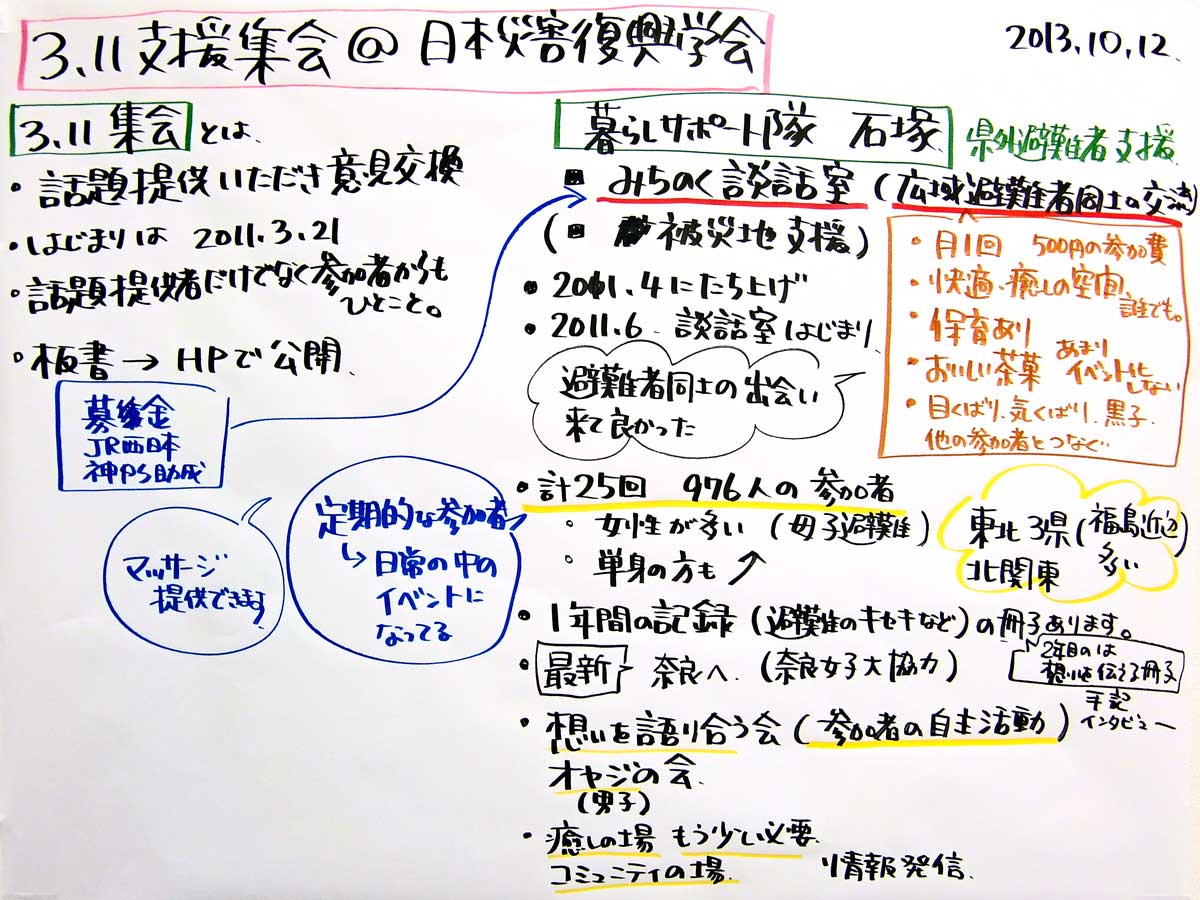 3.11支援集会@日本災害復興学会
2013.10.12.
3.11集会とは、
・話題提供いただき意見交換
・はじまりは 2011.3.21
・話題提供者だけでなく参加者からも
ひとこと。
・板書→HPで公開.
募集金
JR西日本
神戸PS助成
マッサージ
提供できます
定期的な参加者
↳日常の中の
イベントに
なってる
暮らしサポート隊 石塚
県外避難者支援
■みちのく談話室(広域避難者同士の交流)
(■ 被災地支援)
・2011.4にたち上げ
・2011.6 談話室はじまり
避難者同士の出会い
来て良かった
・月1回 500円の参加費
・快適、癒しの空間、
誰でも。
・保育あり
・おいしい茶菓 あまり
イベント化
しない
・目くばり、気くばり、黒子.
他の参加者とつなぐ
・計25回 976人の参加者
・女性が多い(母子避難)
・単身の方も↗
東北3県(福島近辺)
北関東 多い
・1年間の記録(避難のキセキなど)の冊子あります。
2年目のは
想いを伝える冊子
手記
インタビュー
・最新 奈良へ.(奈良女子大協力)
・想いを語り合う会(参加者の自主活動)
オヤジの会.
(男子)
・癒しの場 もう少し必要.
コミュニティの場. 情報発信.